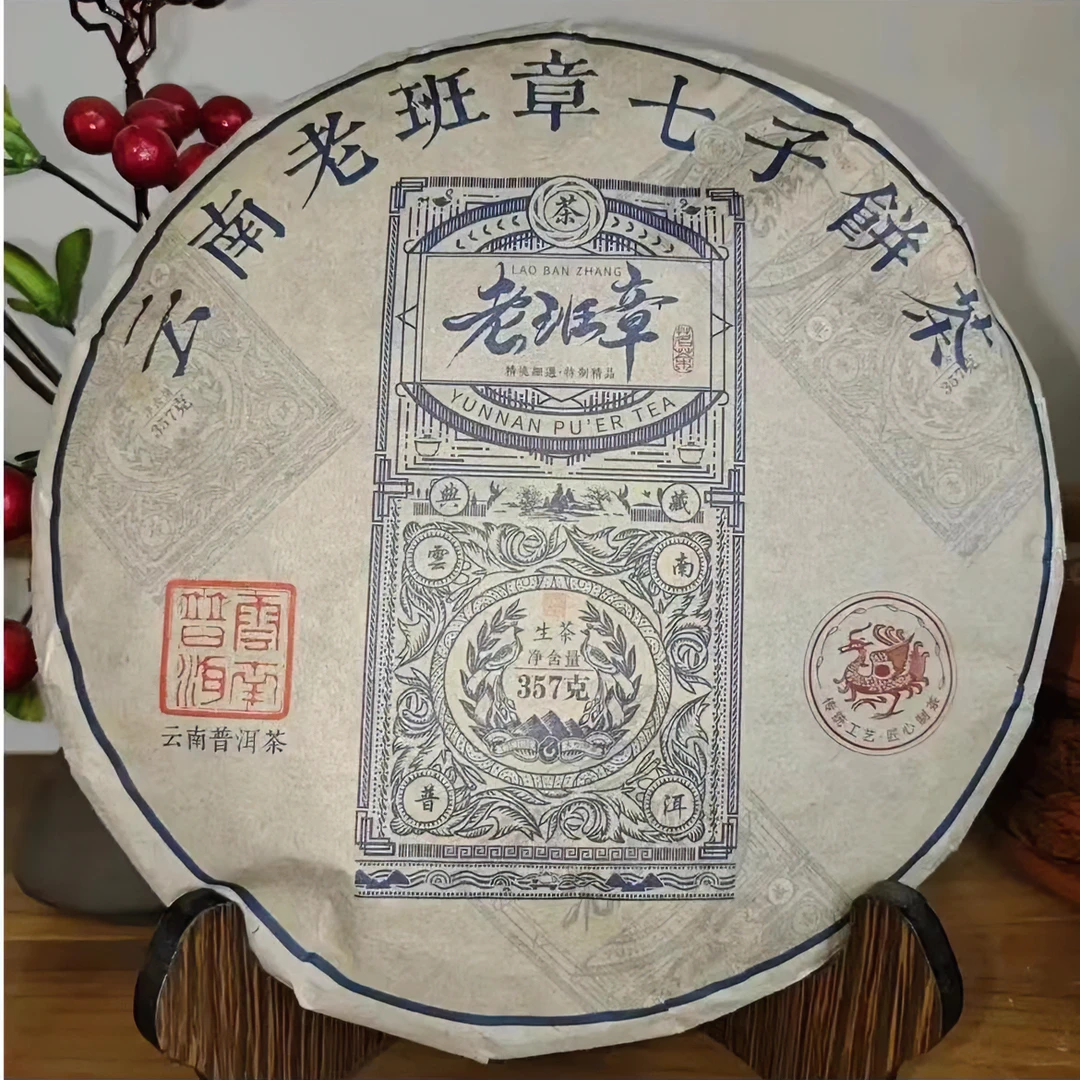 云南老班章七子餅茶
茶
LAO BAN ZHANG
老班章
茗茶
精挑細選·特制精品
YUNNAN PU'ER TEA
典藏
雲南
生茶
净含量
357克
普洱
雲南
普洱
云南普洱茶
传统工艺·匠心制茶
357克
357克